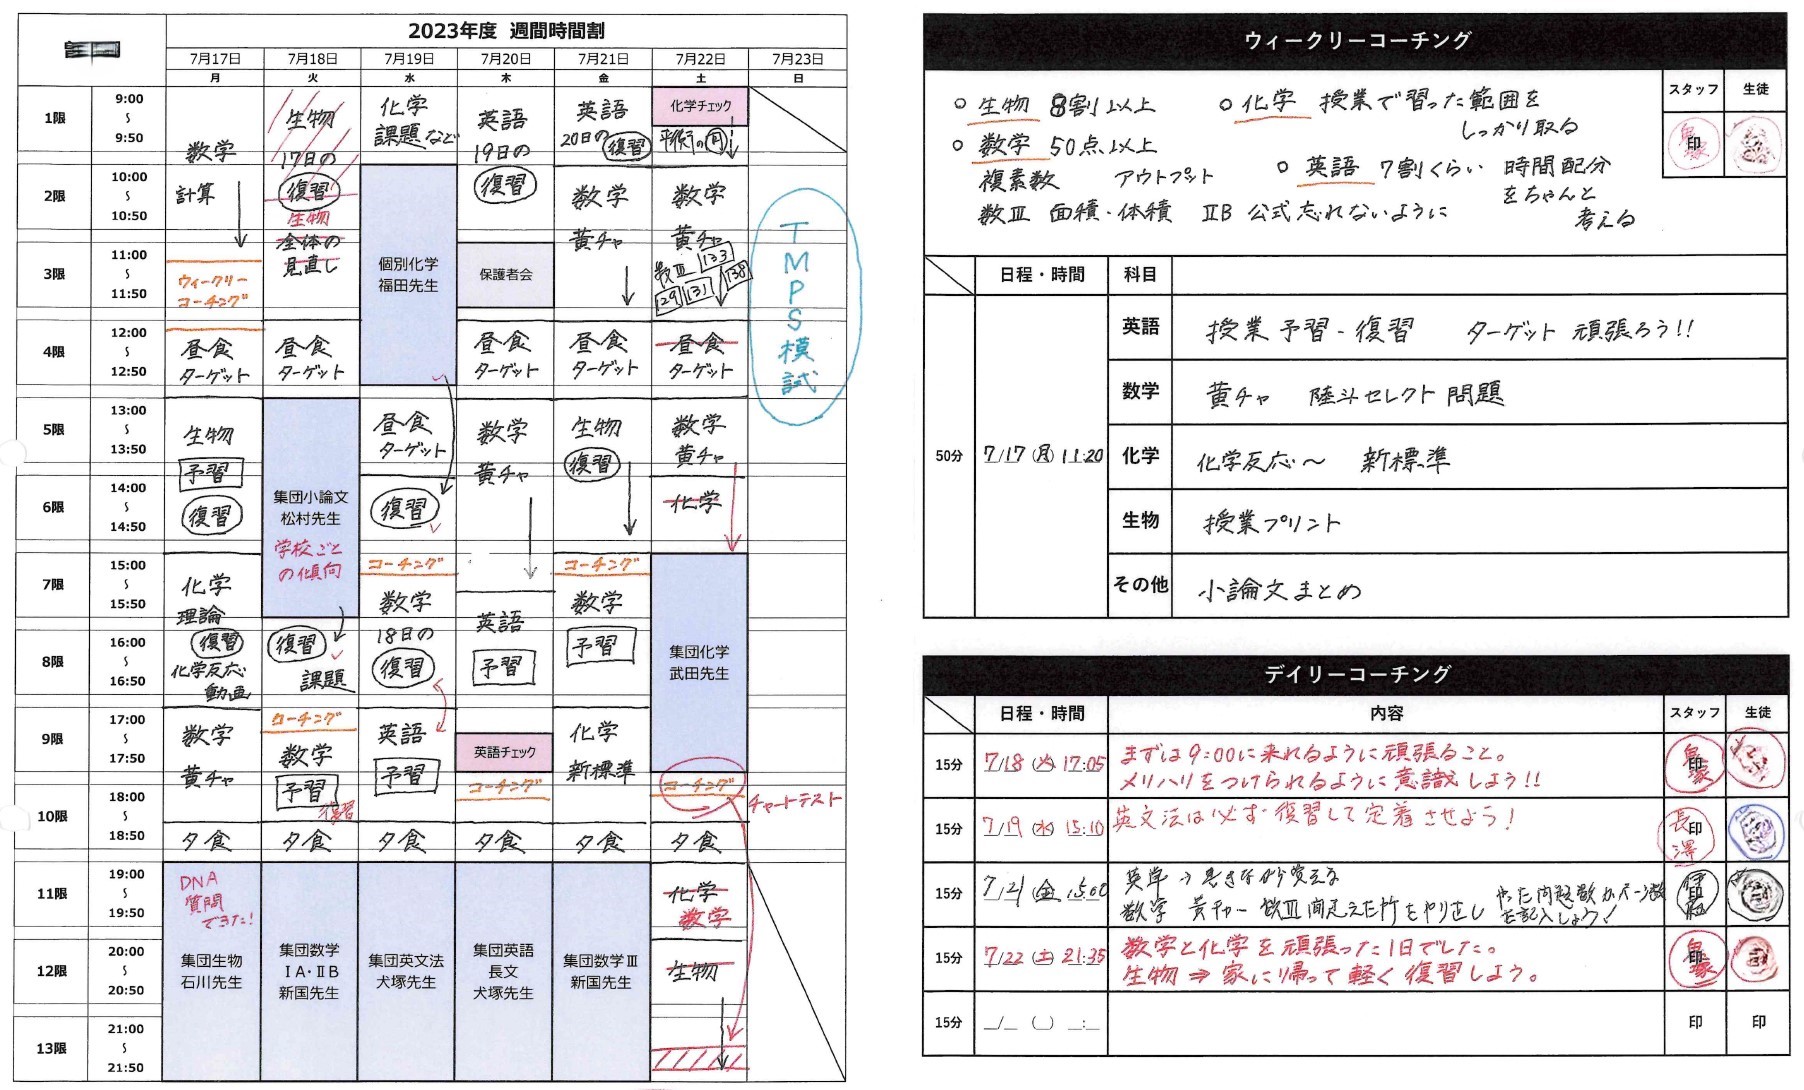 2023年度 週間時間割
7月17日 7月18日 7月19日 7月20日 7月21日 7月22日 7月23日
月 火 水 木 金 土 日
1限
9:00
~
9:50
2限
10:00
~
10:50
3限
11:00
~
11:50
4限
12:00
~
12:50
5限
13:00
~
13:50
6限
14:00
~
14:50
7限
15:00
~
15:50
8限
16:00
~
16:50
9限
17:00
~
17:50
10限
18:00
~
18:50
11限
19:00
~
19:50
12限
20:00
~
20:50
13限
21:00
~
21:50
数学
計算
ウィークリー
コーチング
昼食
ターゲット
生物
予習
復習
化学
理論
復習
化学反応
動画
数学
黄チャ
夕食
DNA
質問
できた!
集団生物
石川先生
生物
17日の
復習
生物
全体の
見直し
昼食
ターゲット
集団小論文
松村先生
学校ごと
の傾向
復習
課題
コーチング
数学
予習
復習
夕食
集団数学
ⅠA・ⅡB
新国先生
化学
課題など
個別化学
福田先生
昼食
ターゲット
復習
コーチング
数学
18日の
復習
英語
予習
夕食
集団英文法
犬塚先生
英語
19日の
復習
保護者会
昼食
ターゲット
数学
黄チャ
英語
予習
英語チェック
コーチング
夕食
集団英語
長文
犬塚先生
英語
20日の復習
数学
黄チャ
昼食
ターゲット
生物
復習
コーチング
数学
予習
化学
新標準
夕食
集団数学Ⅲ
新国先生
化学チェック
数学
黄チャ
数Ⅲ 133
129 131 138
昼食
ターゲット
数学
黄チャ
化学
集団化学
武田先生
コーチング
チャートテスト
夕食
化学
数学
生物
TMPS模試
ウィークリーコーチング
スタッフ 生徒
印
○ 生物 8割以上 ○ 化学 授業で習った範囲を
しっかり取る
○ 数学 50点以上
複素数 アウトプット
○ 英語 7割くらい 時間配分
をちゃんと
考える
数Ⅲ 面積・体積 ⅡB 公式忘れないように
日程・時間 科目
50分 7/17(月) 11:20
英語 授業予習・復習 ターゲット 頑張ろう!!
数学 黄チャ 陸斗セレクト問題
化学 化学反応〜 新標準
生物 授業プリント
その他 小論文まとめ
デイリーコーチング
日程・時間 内容 スタッフ 生徒
15分 7/18(火) 17:05 まずは9:00に来れるように頑張ること。
メリハリをつけられるように意識しよう!!
印
15分 7/19(水) 15:10 英文法は必ず復習して定着させよう!
長印澤
15分 7/21(金) 15:00 英単→書きながら覚える
数学 黄チャー 数Ⅲ間違えた所をやり直し やった問題数かページ数
を記入しよう!
印
15分 7/22(土) 21:35 数学と化学を頑張った1日でした。
生物⇒家に帰って軽く復習しよう。
印
15分 _/_ (_) _:_ 印 印